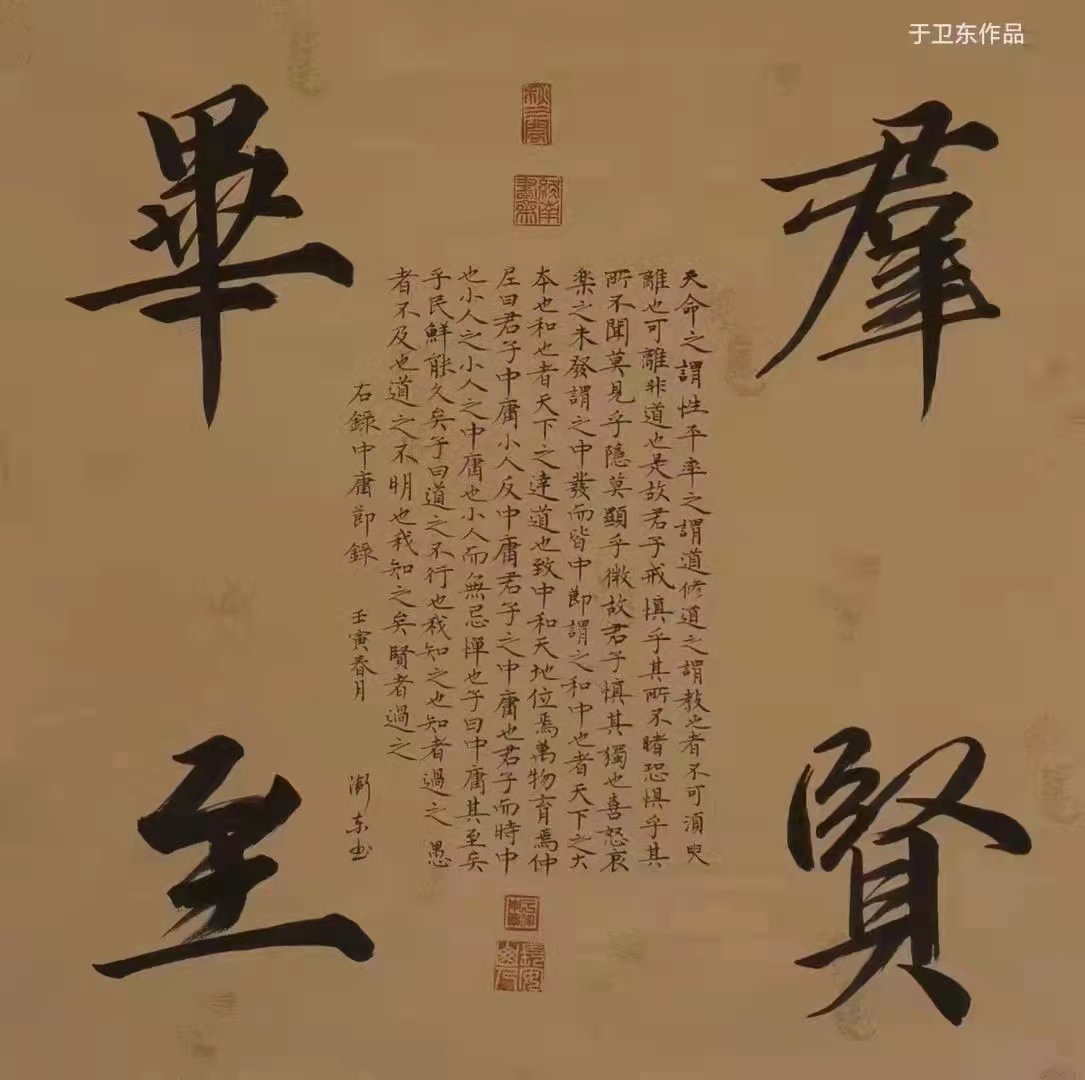 于卫东作品
羣賢
畢至
天命之謂性平率之謂道修道之謂教也者不可須臾
離也可離非道也是故君子戒慎乎其所不睹恐惧乎其
所不聞莫見乎隱莫顯乎微故君子慎其獨也喜怒哀
樂之未發謂之中發而皆中節謂之和中也者天下之大
本也和也者天下之達道也致中和天地位焉萬物育焉仲
尼曰君子中庸小人反中庸君子之中庸也君子而時中
也小人之小人之中庸也小人而無忌憚也子曰中庸其至矣
乎民鮮能久矣子曰道之不行也我知之也知者過之愚
者不及也道之不明也我知之矣賢者過之
右錄中庸節錄 壬寅春月 衛东书